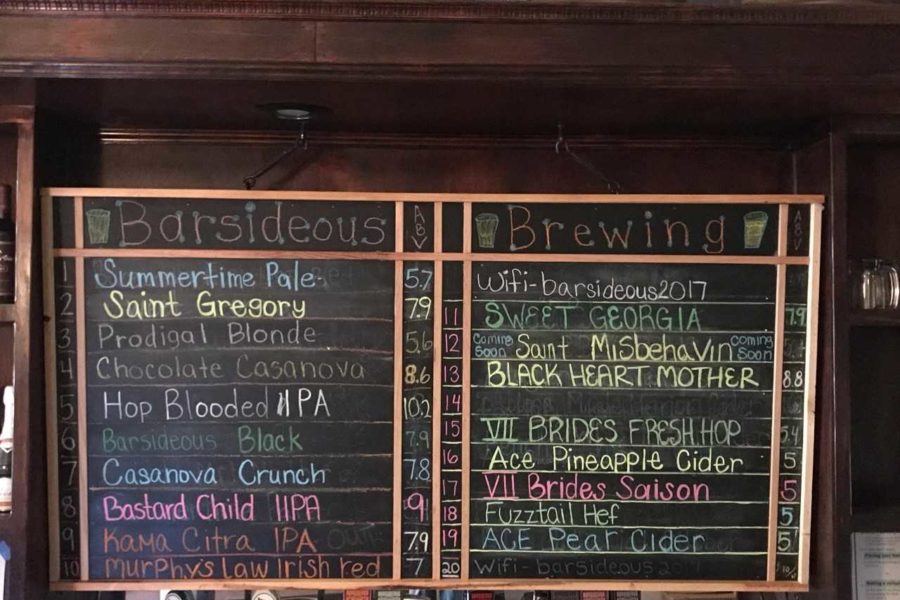 Barsideous ABV
1 Summertime Pale 5.7
2 Saint Gregory 7.9
3 Prodigal Blonde 5.6
4 Chocolate Casanova 8.6
5 Hop Blooded IIPA 10.2
6 Barsideous Black 7.9
7 Casanova Crunch 7.8
8 Bastard Child IIPA 9
9 Kama Citra IPA 7.9
10 Murphys Law Irish red 7
Brewing ABV
Wifi-barsideous2017
11 SWEET GEORGIA 7.9
12 Coming Soon Saint MisbehaVin Coming Soon
13 BLACK HEART MOTHER 8.8
14
15 VII BRIDES FRESH HOP 5.4
16 Ace Pineapple Cider 5
17 VII Brides Saison 5
18 Fuzztail Hef 5
19 ACE Pear Cider 5
20 Wifi-barsideous